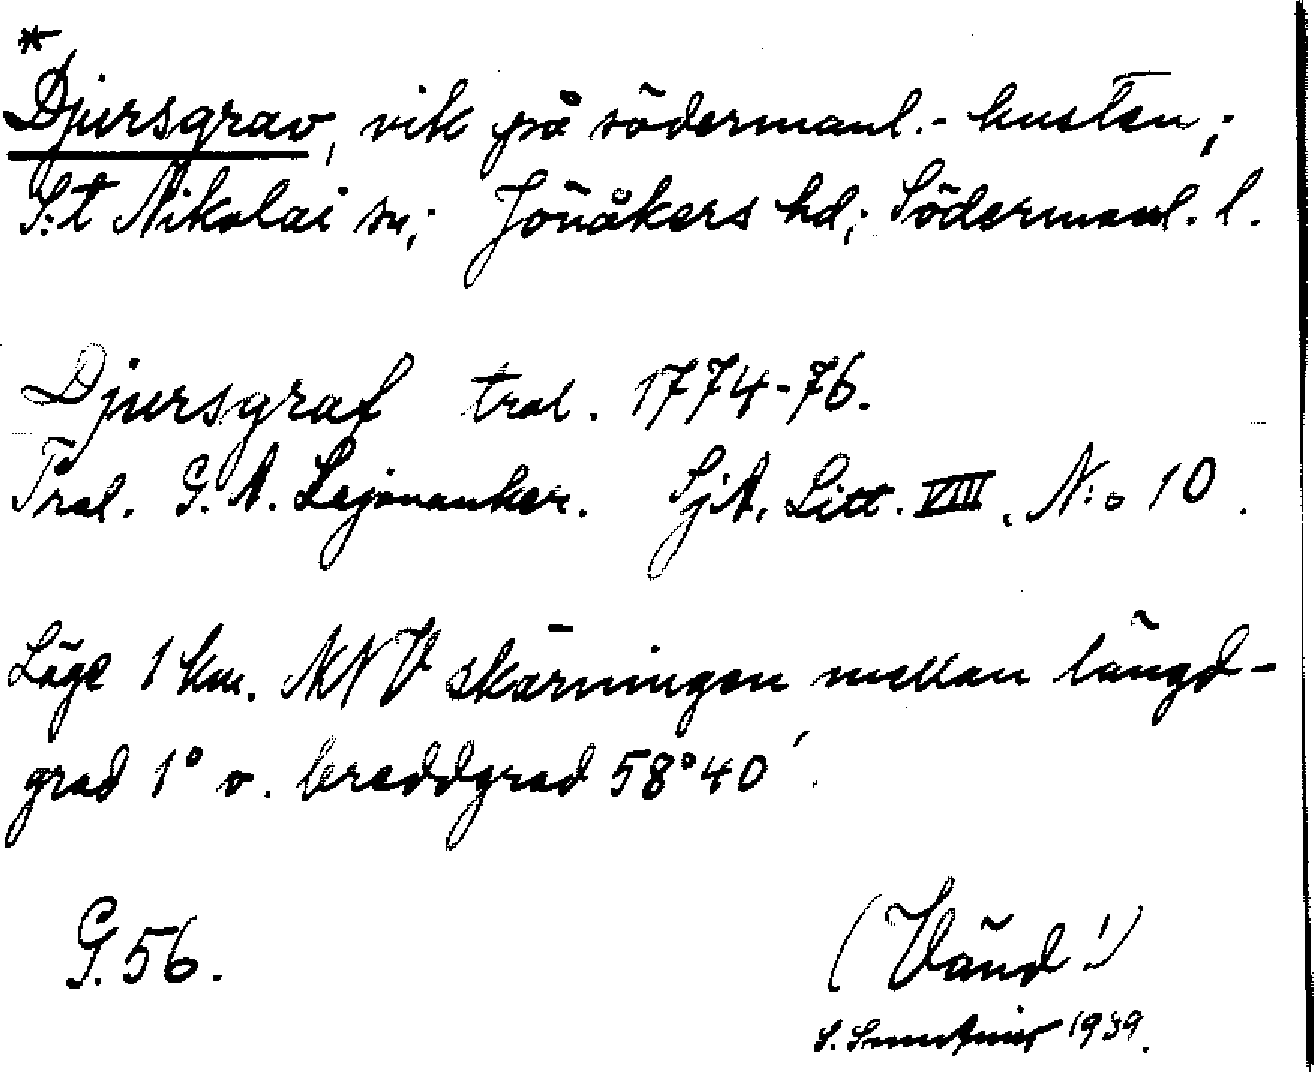 *
Djursgrav, vik på södermanl.-kusten;
S:t Nikolai sn; Jönåkers hd; Södermanl. l.
Djursgraf tral. 1774-76.
Tral. G. A. Lejonanker. SjA. Litt. VIII. N:o 10.
Läge 1 km. NNV skärningen mellan längd-
grad 1° o. breddgrad 58°40'.
G. 56.
(Vänd!)
S. 1939.